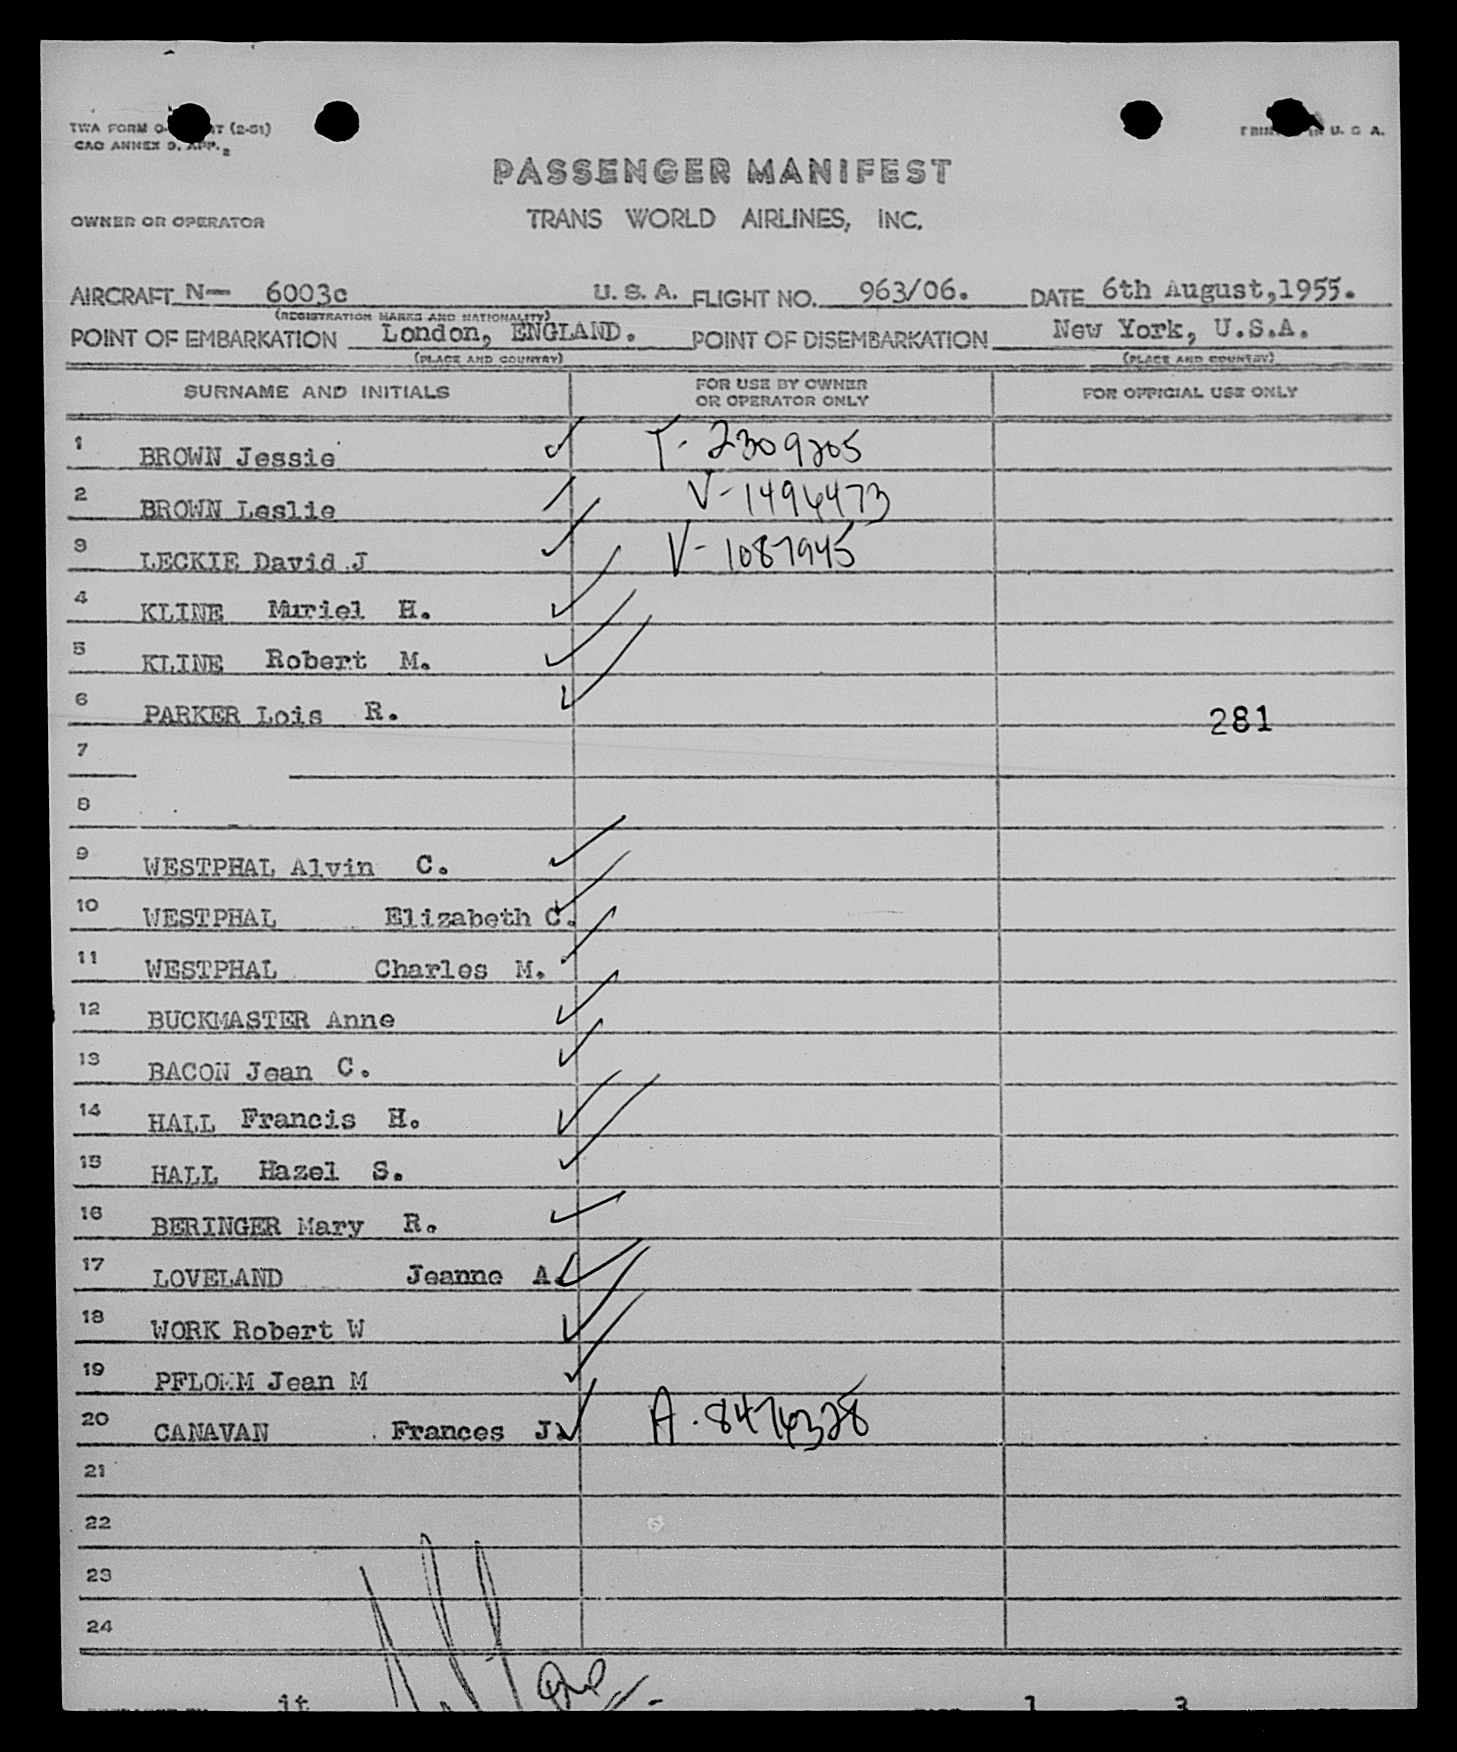 TWA FORM O- T (2-51)
CAO ANNEX 9, APP. 2
PRINTED IN U. S. A.
PASSENGER MANIFEST
OWNER OR OPERATOR
TRANS WORLD AIRLINES, INC.
AIRCRAFT N— 6003c U. S. A. FLIGHT NO. 963/06. DATE 6th August,1955.
(REGISTRATION MARKS AND NATIONALITY)
POINT OF EMBARKATION London, ENGLAND. POINT OF DISEMBARKATION New York, U.S.A.
(PLACE AND COUNTRY) (PLACE AND COUNTRY)
SURNAME AND INITIALS FOR USE BY OWNER OR OPERATOR ONLY FOR OFFICIAL USE ONLY
1 BROWN Jessie ✓ T-2309205
2 BROWN Leslie / V-1496473
3 LECKIE David J ✓ V-1087945
4 KLINE Muriel H. ✓
5 KLINE Robert M. ✓
6 PARKER Lois R. ✓ 281
7
8
9 WESTPHAL Alvin C. ✓
10 WESTPHAL Elizabeth C. ✓
11 WESTPHAL Charles M. ✓
12 BUCKMASTER Anne ✓
13 BACON Jean C. ✓
14 HALL Francis H. ✓
15 HALL Hazel S. ✓
16 BERINGER Mary R. ✓
17 LOVELAND Jeanne A. ✓
18 WORK Robert W ✓
19 PFLOMM Jean M ✓
20 CANAVAN Frances J. ✓ A-8476328
21
22
23
24
it 1 3